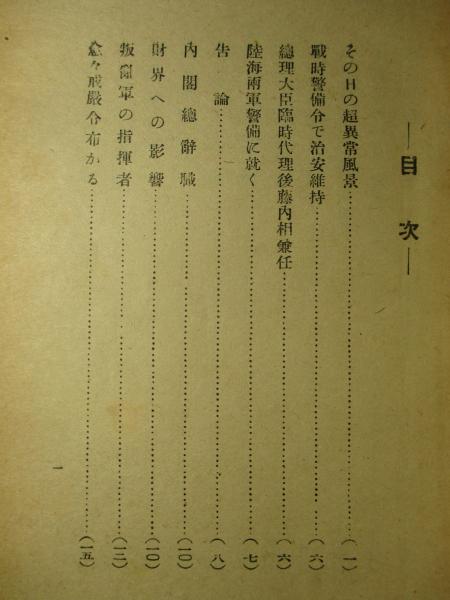 ―目次―
その日の超異常風景……(一)
戰時警備令で治安維持……(六)
總理大臣臨時代理後藤內相兼任……(六)
陸海兩軍警備に就く……(七)
告諭……(八)
內閣總辭職……(一〇)
財界への影響……(一〇)
叛亂軍の指揮者……(一三)
愈々戒嚴令布かる……(一五)
一